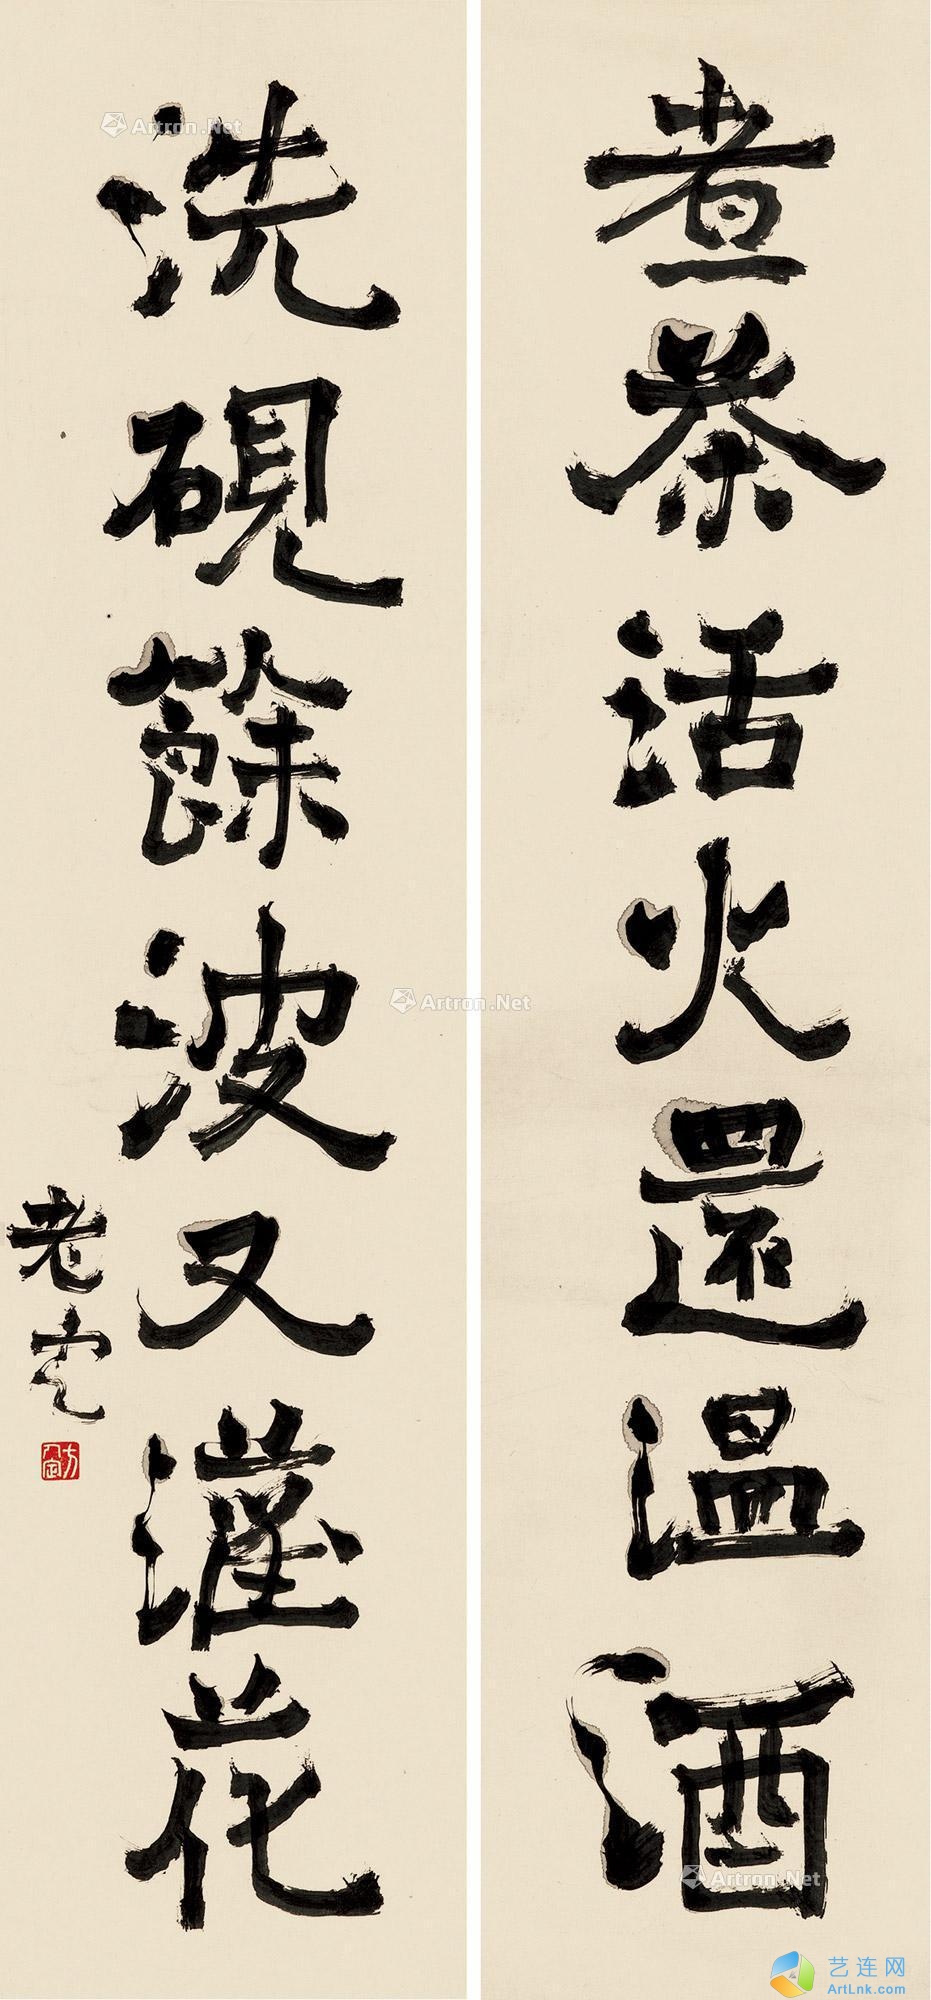 煮茶活火還温酒
洗硯餘波又灌花
老定
方
人定
Artron.Net
Artron.Net
Artron.Net
艺连网
ArtLnk.com